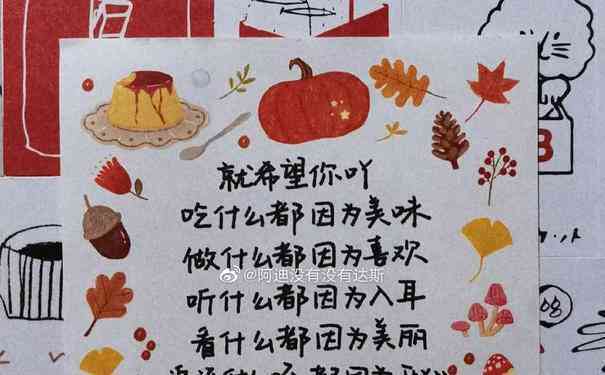 就希望你吖
吃什么都因为美味
做什么都因为喜欢
@阿迪没有没有达斯
听什么都因为入耳
看什么都因为美丽
都因为
08
B